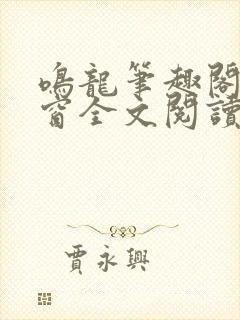 鳴龍筆趣閣
窗全文閱讀
賈永興